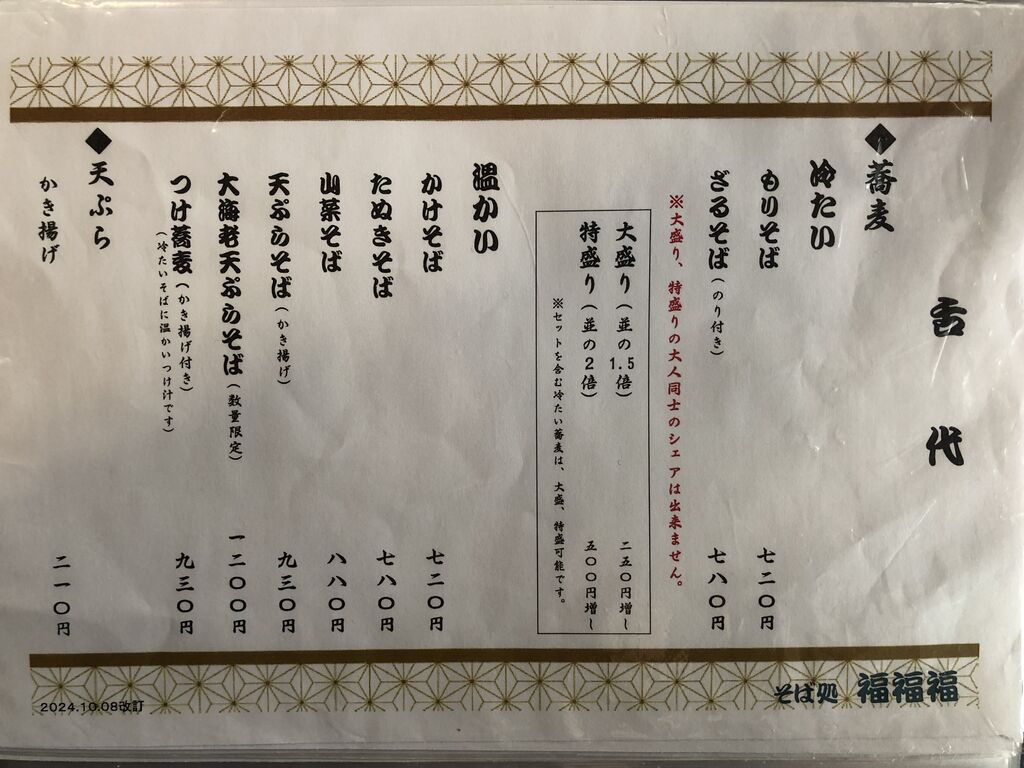 舌代
◆蕎麦
冷たい
もりそば 七二〇円
ざるそば(のり付き) 七八〇円
※大盛り、特盛りの大人同士のシェアは出来ません。
大盛り(並の1.5倍) 二五〇円増し
特盛り(並の2倍) 五〇〇円増し
※セットを含む冷たい蕎麦は、大盛、特盛可能です。
温かい
かけそば 七二〇円
たぬきそば 七八〇円
山菜そば 八八〇円
天ぷらそば(かき揚げ) 九三〇円
大海老天ぷらそば(数量限定) 一二〇〇円
つけ蕎麦(かき揚げ付き) 九三〇円
(冷たいそばに温かいつけ汁です)
◆天ぷら
かき揚げ 二一〇円
そば処 福福福
2024.10.08改訂